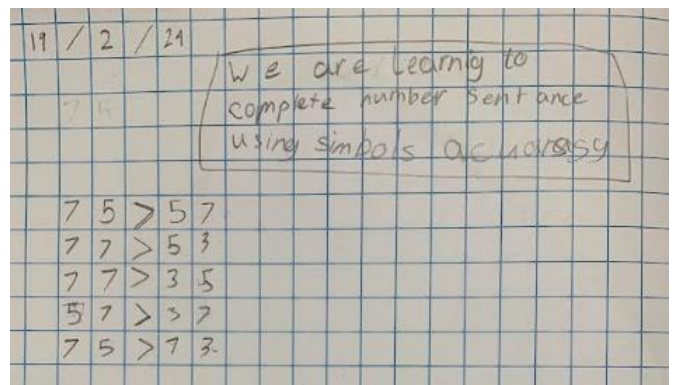 19 / 2 / 24
We are learnig to
complete number sentance
using simbols acuarasy
7 5 > 5 7
7 7 > 5 3
7 7 > 3 5
5 7 > 3 7
7 5 > 7 3